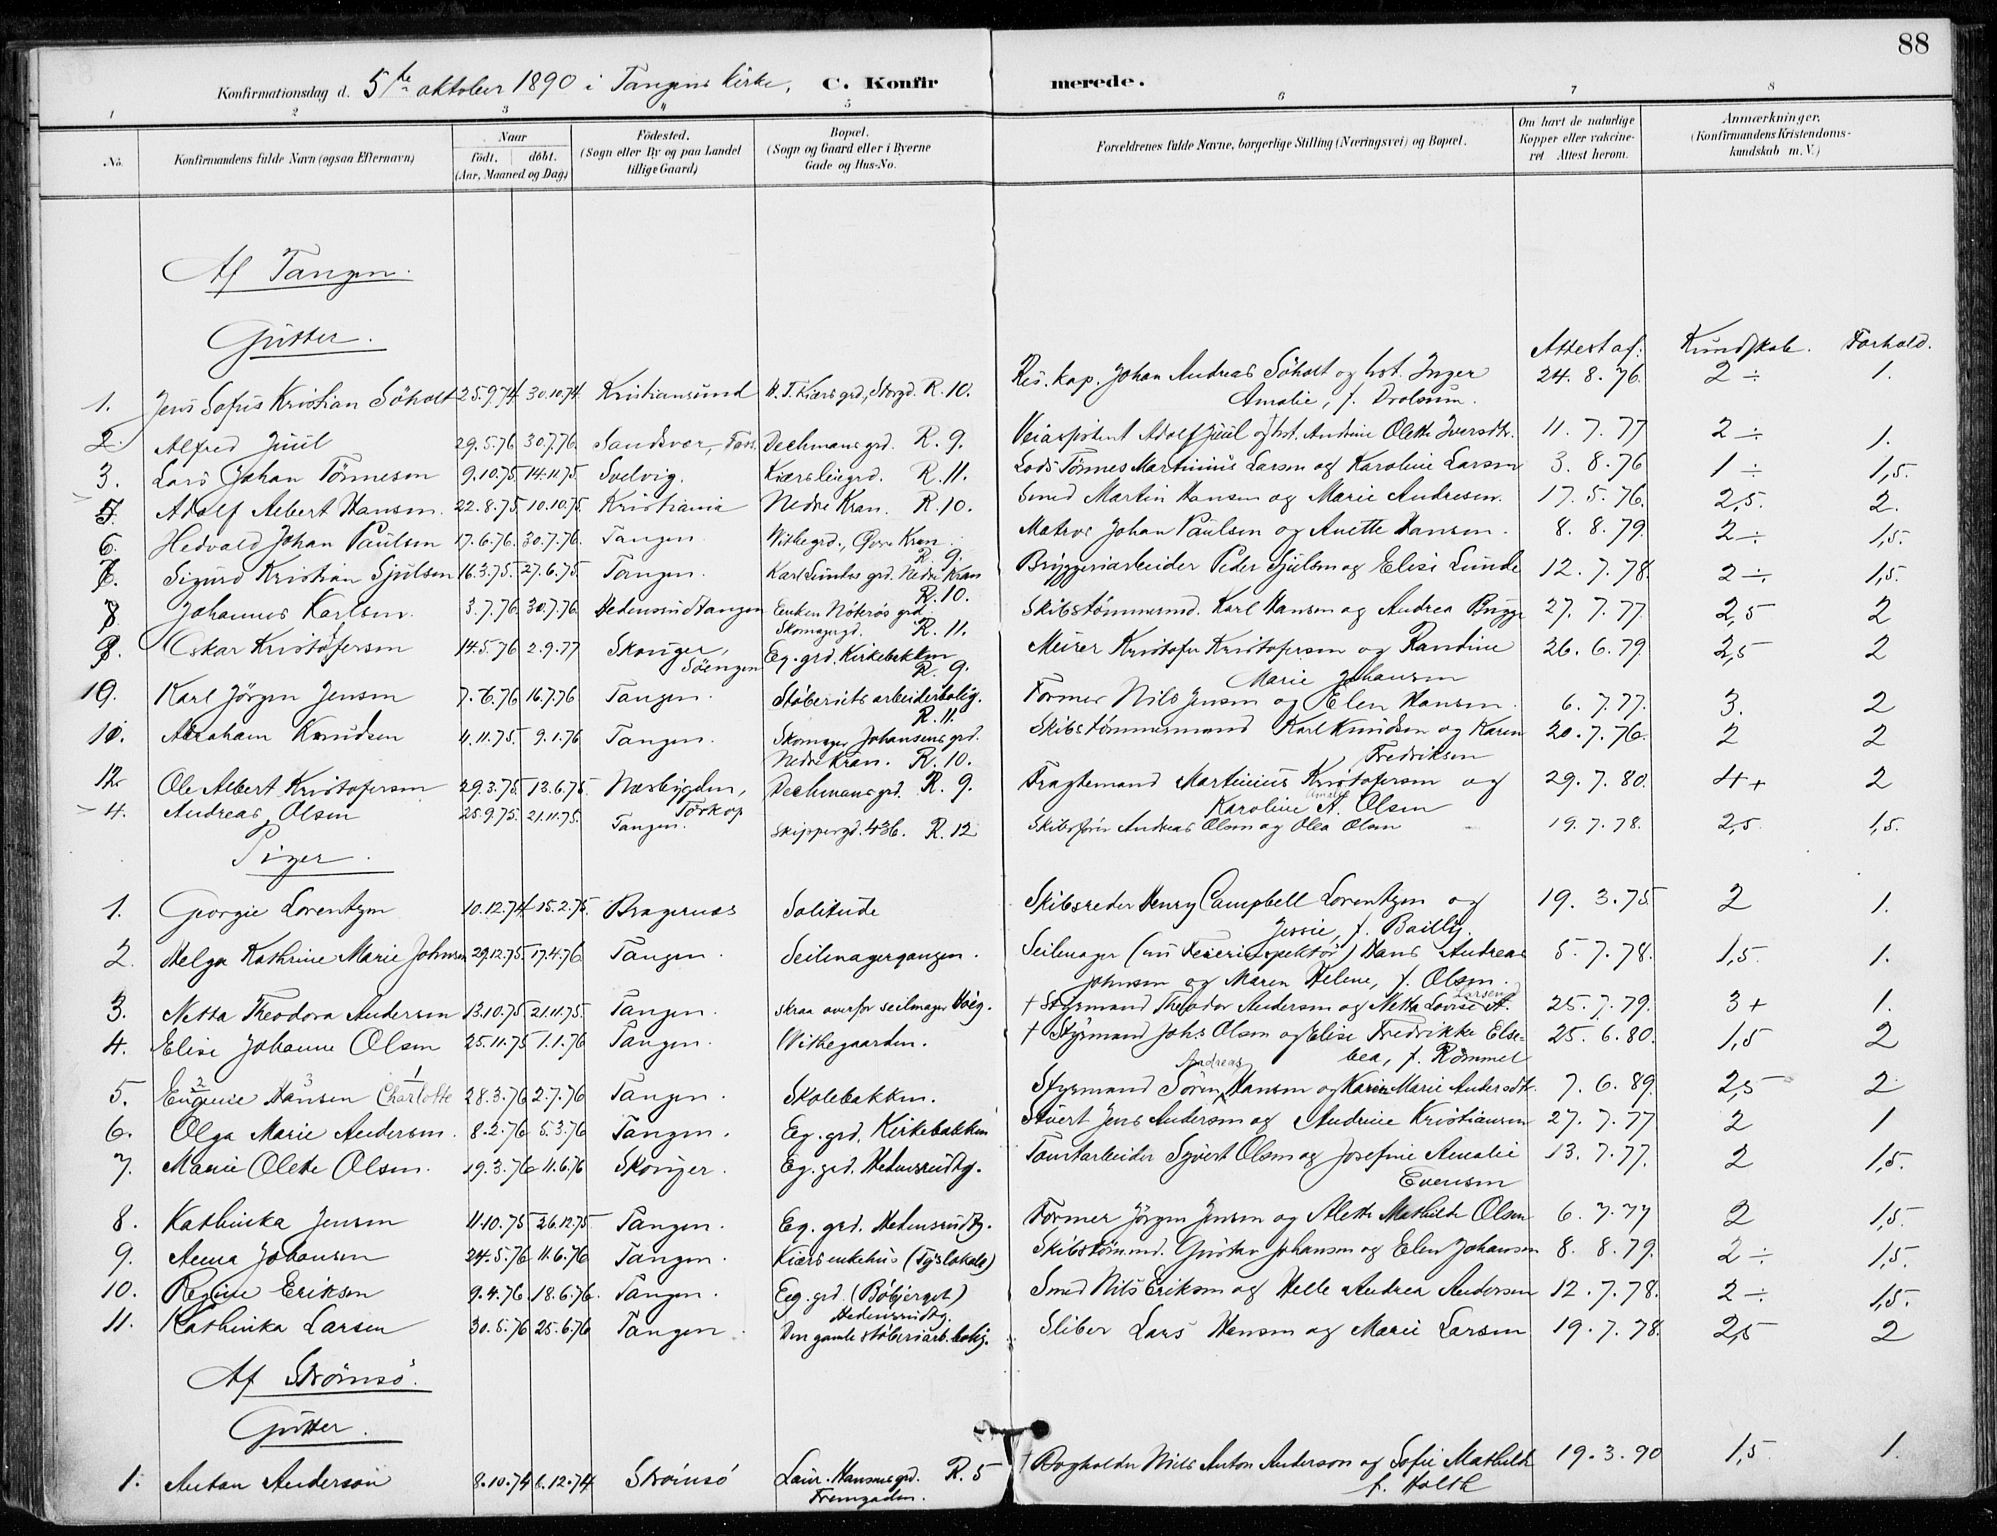 88
Konfirmationsdag d. 5te oktober 1890 i Tangens Kirke, C. Konfirmerede.
1 2 3 4 5 6 7 8
No. Konfirmandens fulde Navn (ogsaa Efternavn) Naar født. døbt. (Aar, Maaned og Dag) Födested. (Sogn eller By og paa Landet tillige Gaard) Bopæl. (Sogn og Gaard eller i Byerne Gade og Hus-No. Forældrenes fulde Navne, borgerlige Stilling (Næringsvei) og Bopæl. Om havt de naturlige Kopper eller vakcineret Attest herom. Anmærkninger, (Konfirmandens Kristendomskundskab m. V.)
Af Tangen.
Gutter.
Attest af: Kundskab. Forhold.
1. Jens Sofus Kristian Söholt 25.9.74 30.10.74 Kristiansund Kiærs grd, Storgd. R. 10. Res. kap. Johan Andreas Söholt og hst. Inger 24.8.76. 2 ÷ 1.
Amalie, f. Drolsum.
2. Alfred Juul 29.5.76 30.7.76. Sandsvær, Dechmans grd. R. 9. Adolf Juul og hst. Andrine Olette Iversdtr. 11.7.77 2 ÷ 1.
3. Lars Johan Tönnesen 9.10.75 14.11.75. Svelvig. R. 11. Lods Tönnes Martinius Larsen og Karoline Larsen 3.8.76 1 ÷ 1,5.
5. Adolf Albert Hansen. 22.8.75 10.10.75. Kristiania Nedre Kran. R. 10. Smed Martin Hansen og Marie Andresen. 17.5.76. 2,5. 2.
6. Hedvald Johan Paulsen 17.6.76. 30.7.76. Tangen. Withegrd., Øvre Kran. R. 9. Matros Johan Paulsen og Anette Hansen. 8.8.79. 2 ÷ 1,5.
7. Sigurd Kristian Sjulsen 16.3.75. 27.6.75. Tangen. Karl Lundes grd. Nedre Kran R. 10. Bryggeriarbeider Peder Sjulsen og Elise Lunde 12.7.78. 2 ÷ 1,5.
8. Johannes Karlsen. 3.7.76 30.7.76. Hedensrudtangen Enken Nöterös grd. Skomagergd. R. 11. Skibstömmermd. Karl Hansen og Andrea Brygge 27.7.77. 2,5 2
9. Oskar Kristofersen 14.5.76 2.9.77 Skouger, Söengen Eg. grd. Kirkebakken R. 9. Murer Kristofer Kristofersen og Randine 26.6.79. 2,5 2
Marie Johansen
10. Karl Jörgen Jensen 7.6.76 16.7.76 Tangen. Stöberiets arbeiderbolig. R. 11. Former Nils Jensen og Elen Hansen. 6.7.77. 3. 2
11. Abraham Knudsen 4.11.75. 9.1.76 Tangen. Skomager Johansens grd. Nedre Kran. R. 10. Skibstömmermand Karl Knudsen og Karen 20.7.76. 2 2
Fredriksen
12. Ole Albert Kristofersen 29.3.75. 13.6.75. Næsbygden, Torskop Dechmans grd. R. 9. Fragtemand Martinius Kristofersen og 29.7.80. 4+ 2
Karoline A. Olsen
4. Andreas Olsen 25.9.75. 21.11.75. Tangen. Skippergd. 436. R. 12 Skibsförer Andreas Olsen og Olea Olsen 19.7.78. 2,5. 1,5.
Piger.
1. Georgie Lorentzen 10.12.74 15.2.75. Bragernæs Solitude Skibsreder Henry Campbell Lorentzen og 19.3.75 2 1.
Jessie, f. Bailly.
2. Helga Kathrine Marie Johnsen 29.12.75. 17.4.76 Tangen. Seilmagergangen. Seilmager (nu Feierinspektör) Hans Andreas 5.7.78. 1,5. 1.
Johnsen og Maren Helene, f. Olsen.
3. Netta Theodora Andersen 13.10.75. 21.11.75. Tangen. skraa overfor seilmager Höeg. † Styrmand Theodor Andersen og Netta Lovise A. Larsen 25.7.79. 3+ 1.
4. Elise Johanne Olsen 25.11.75 1.1.76 Tangen. Withegaarden. † Styrmand Johs. Olsen og Elise Fredrikke Else- 25.6.80. 1,5 2
bea, f. Römmel
5. Eugenie Hansen Charlotte 2 3 1 28.3.76 2.7.76 Tangen. Skolebakken. Styrmand Sören Andreas Hansen og Karen Marie Andersdtr. 7.6.89. 2,5 2
6. Olga Marie Andersen. 8.2.76 5.3.76 Tangen. Eg. grd. Kirkebakken Stuert Jens Andersen og Andrine Kristiansen 27.7.77 2 1
7. Marie Olette Olsen. 19.3.76 11.6.76 Skouger. Eg. grd. Hedensrudtg. Tomtarbeider Syvert Olsen og Josefine Amalie 13.7.77. 2 1,5.
Evensen
8. Kathinka Jensen 11.10.75 26.12.75 Tangen. Eg. grd. Hedensrudtg. Former Jörgen Jensen og Alette Mathilde Olsen 6.7.77 2 1,5.
9. Anna Johansen 24.5.76 11.6.76 Tangen. Kiærs enkehus (Tyslokale) Skibstömmd. Gustav Johansen og Elen Johansen 8.8.79. 2 ÷ 1,5.
10. Regine Eriksen 9.4.76 18.6.76. Tangen. Eg. grd. (Böbjerget) Hedensrudtg. Smed Nils Eriksen og Helle Andrea Andersen 12.7.78. 2 ÷ 1,5.
11. Kathinka Larsen 30.5.76 25.6.76 Tangen. Den gamle stöberiarb. bolig. Sliber Lars Hansen og Marie Larsen 19.7.78. 2,5 2
Af Strömsö.
Gutter.
1. Anton Anderson 8.10.74 6.12.74 Strömsö Laur. Hansens grd. R. 5 Fremgaden. Bogholder Nils Anton Anderson og Sofie Mathilde 19.3.90 1,5 1.
f. Holth